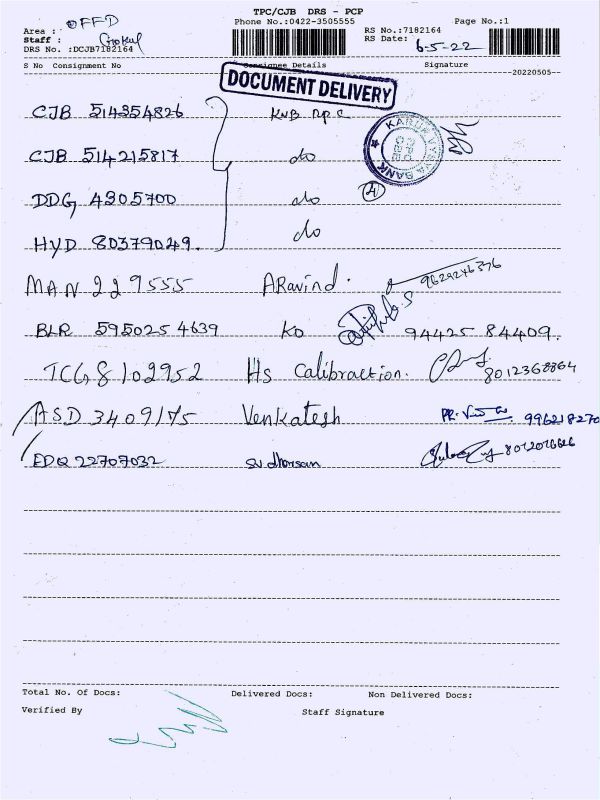 TPC/CJB DRS - PCP
OFFD
Phone No.:0422-3505555
Page No.:1
Area :
RS No.:7182164
Staff : Gokul
RS Date: 6-5-22
DRS No. :DCJB7182164
S No Consignment No Consignee Details Signature
--20220505--
DOCUMENT DELIVERY
CJB 514354826 KVB
KARUR VYSYA BANK
CJB 514215817 do
DDG 4305700 do 4
HYD 80379049. do
MAN 229555 ARavind. 9629246376
BLR 5950254639 KO 94425 84409.
TCG8102952 Hs Calibraction. 8012368864
ASD 3409175 Venkatesh 996218270
EDQ 22707032 Sudharsan 8012026666
Total No. Of Docs: Delivered Docs: Non Delivered Docs:
Verified By Staff Signature